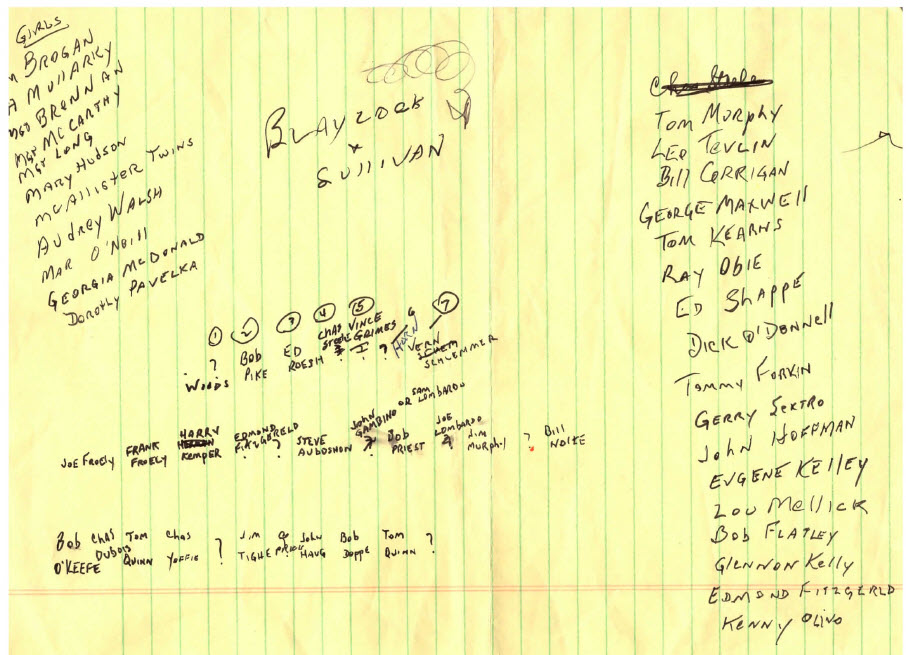 GIRLS
BROGAN
A MULLARKY
MGT BRENNAN
MGT MCCARTHY
MGT LONG
MARY HUDSON
MCALLISTER TWINS
AUDREY WALSH
MAR O'NEILL
GEORGIA MCDONALD
DOROTHY PAVELKA
BLAYLOCK
+
SULLIVAN
Tom MURPHY
LEO TEVLIN
Bill CORRIGAN
GEORGE MAXWELL
TOM KEARNS
RAY OBIE
ED SHAPPE
DICK O'DONNELL
TOMMY FORKIN
GERRY SEXTRO
JOHN HOFFMAN
EUGENE KELLEY
LOU MELLICK
BOB FLATLEY
GLENNON KELLY
EDMOND FITZGERLD
KENNY OLIVO
1 2 3 4 5 6 7
? BOB ED CHAS VINCE VERN
WOODS PIKE ROESH STEELE GRIMES ? SCHLEMMER
HARRY EDMOND JOHN GAMBINO OR SAM LOMBARDO JOE LOMBARDO
JOE FROELY FRANK FROELY KEMPER FITZGERELD ? STEVE AUBUSHON ? BOB PRIEST ? JIM MURPHY ? Bill NOISE
BOB CHAS TOM CHAS JIM JOHN BOB TOM
O'KEEFE DUBOIS QUINN YOFFIE ? TIGHE PRIOR HAUG DOPPE QUINN ?